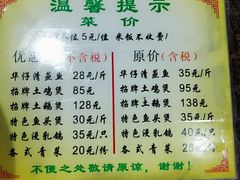 温馨提示
菜价
位5元/位 来饭不收费)
优惠 (不含税) 原价 (含税)
华仔清蒸鱼 28元/斤 华仔清蒸鱼 35元/斤
招牌土鸡煲 85元 招牌土鸡煲 95元
招牌土鹅煲 128元 招牌土鹅煲 138元
特色鱼头煲 30元/斤 特色鱼头煲 35元/斤
特色浸乳鸽 35元/只 特色浸乳鸽 40元/只
各式青菜 20元/份 各式青菜 25元/份
不便之处敬请原谅,谢谢!